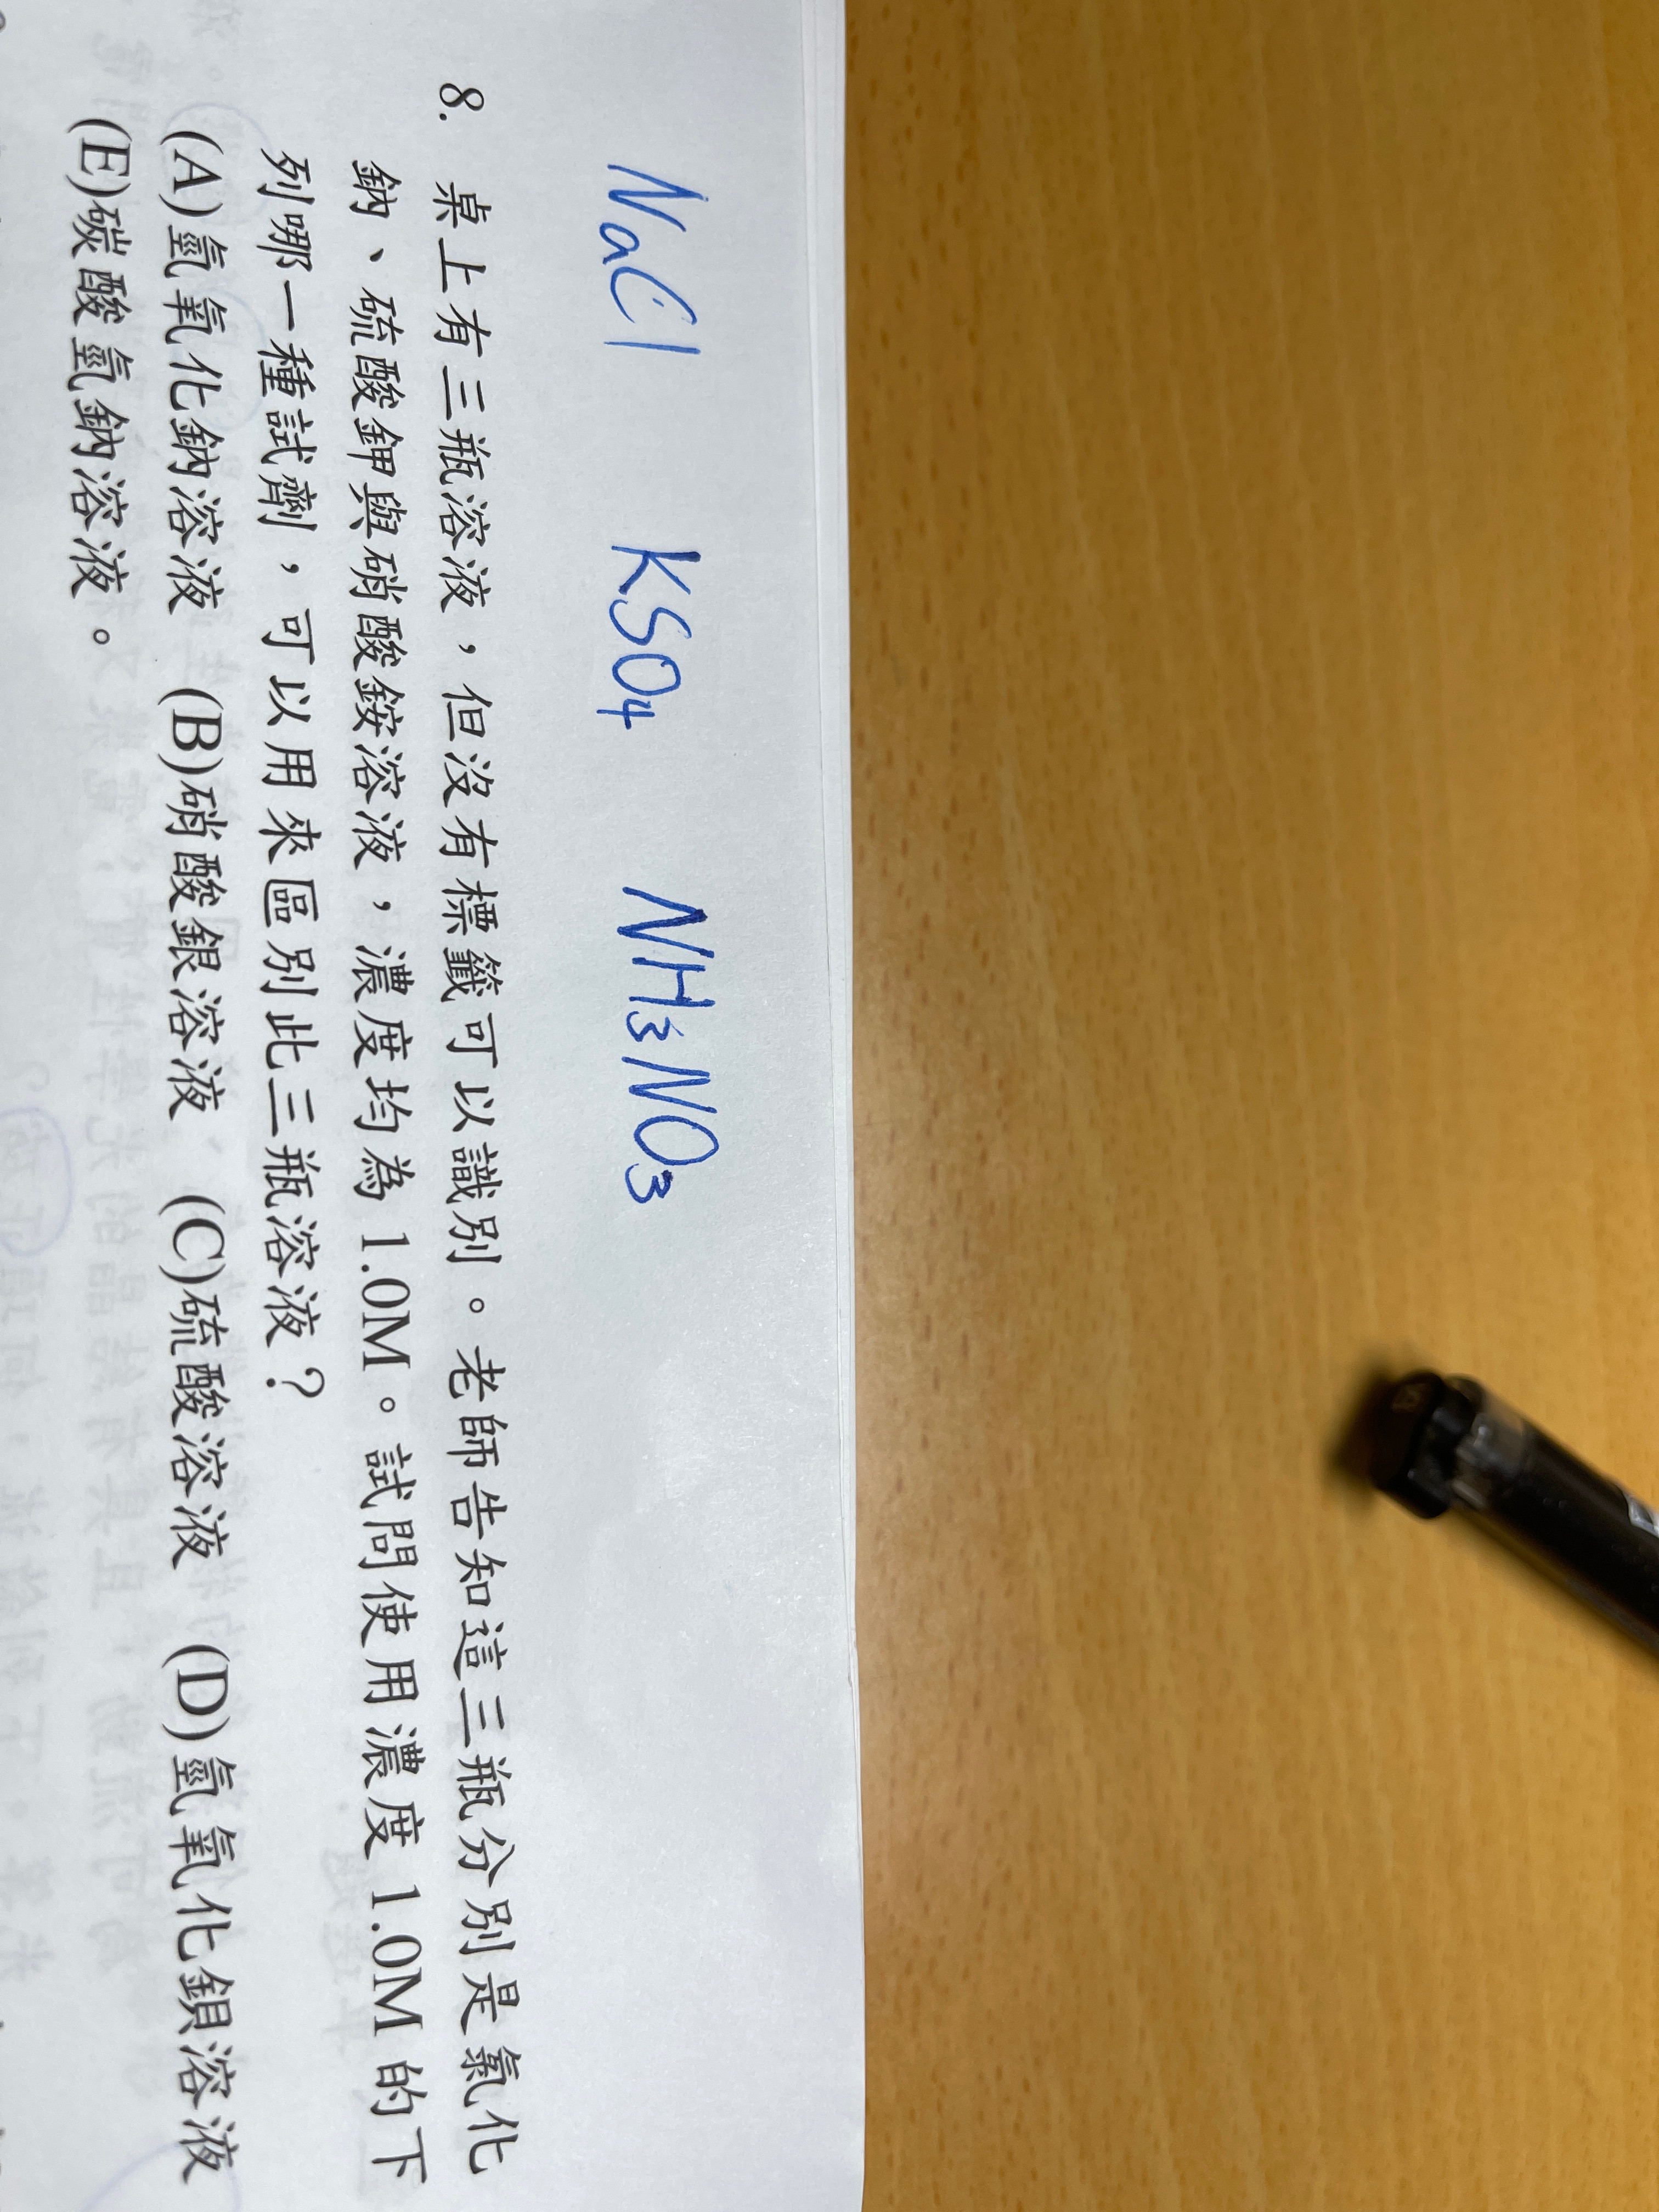 NaCl KSO4 NH3NO3
8. 桌上有三瓶溶液，但沒有標籤可以識別。老師告知這三瓶分別是氯化
鈉、硫酸鉀與硝酸銨溶液，濃度均為 1.0M。試問使用濃度 1.0M 的下
列哪一種試劑，可以用來區別此三瓶溶液？
(A)氫氧化鈉溶液 (B)硝酸銀溶液 (C)硫酸溶液 (D)氫氧化鋇溶液
(E)碳酸氫鈉溶液。